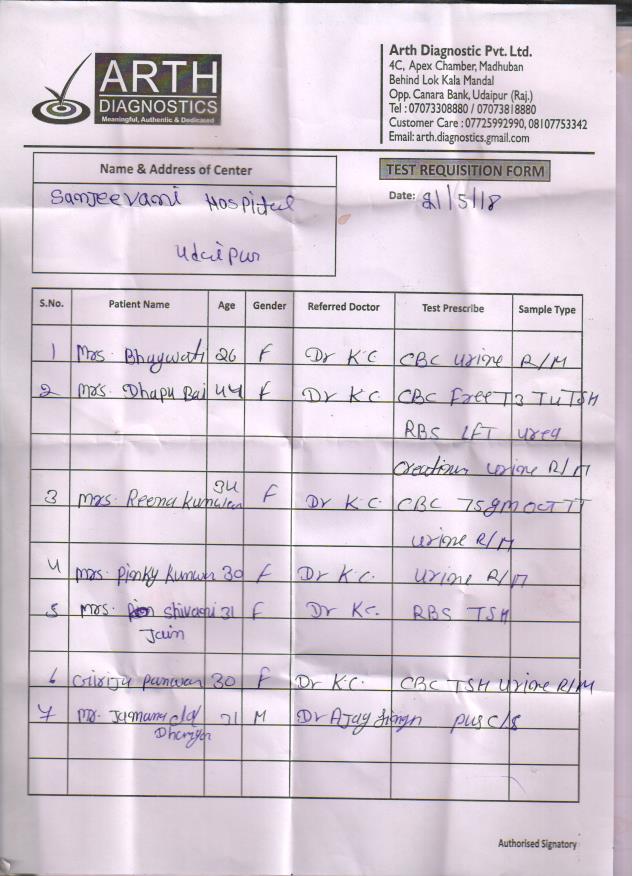 ARTH
DIAGNOSTICS
Meaningful, Authentic & Dedicated
Arth Diagnostic Pvt. Ltd.
4C, Apex Chamber, Madhuban
Behind Lok Kala Mandal
Opp. Canara Bank, Udaipur (Raj.)
Tel : 07073308880 / 07073818880
Customer Care : 07725992990, 08107753342
Email: arth.diagnostics.gmail.com
Name & Address of Center
TEST REQUISITION FORM
Sanjeevani Hospital
Udaipur
Date: /5/18
S.No. Patient Name Age Gender Referred Doctor Test Prescribe Sample Type
1 Mrs. Bhagwati 26 F Dr K.C CBC Urine R/M
2 Mrs. Dhapu Bai 44 F Dr K.C. CBC Free T3 T4 TSH
RBS LFT Urea
urine R/M
3 Mrs. Reena Kunwar 34 F Dr K.C. CBC TSH
urine R/M
4 Mrs. Pinky Kunwar 30 F Dr K.C. Urine R/M
5 Mrs. Shivani 31 F Dr K.C. RBS TSH
Jain
6 Girija Panwar 30 F Dr K.C. CBC TSH Urine R/M
7 Mr. M Dr Ajay Singh Pus C/S
Authorised Signatory